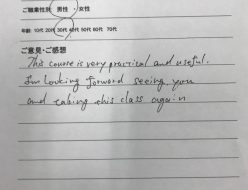 ご職業性別 男性 ・ 女性
年齢: 10代 20代 30代 40代 50代 60代 70代
ご意見・ご感想
This course is very practical and useful.
I'm looking forward seeing you
and taking this class again